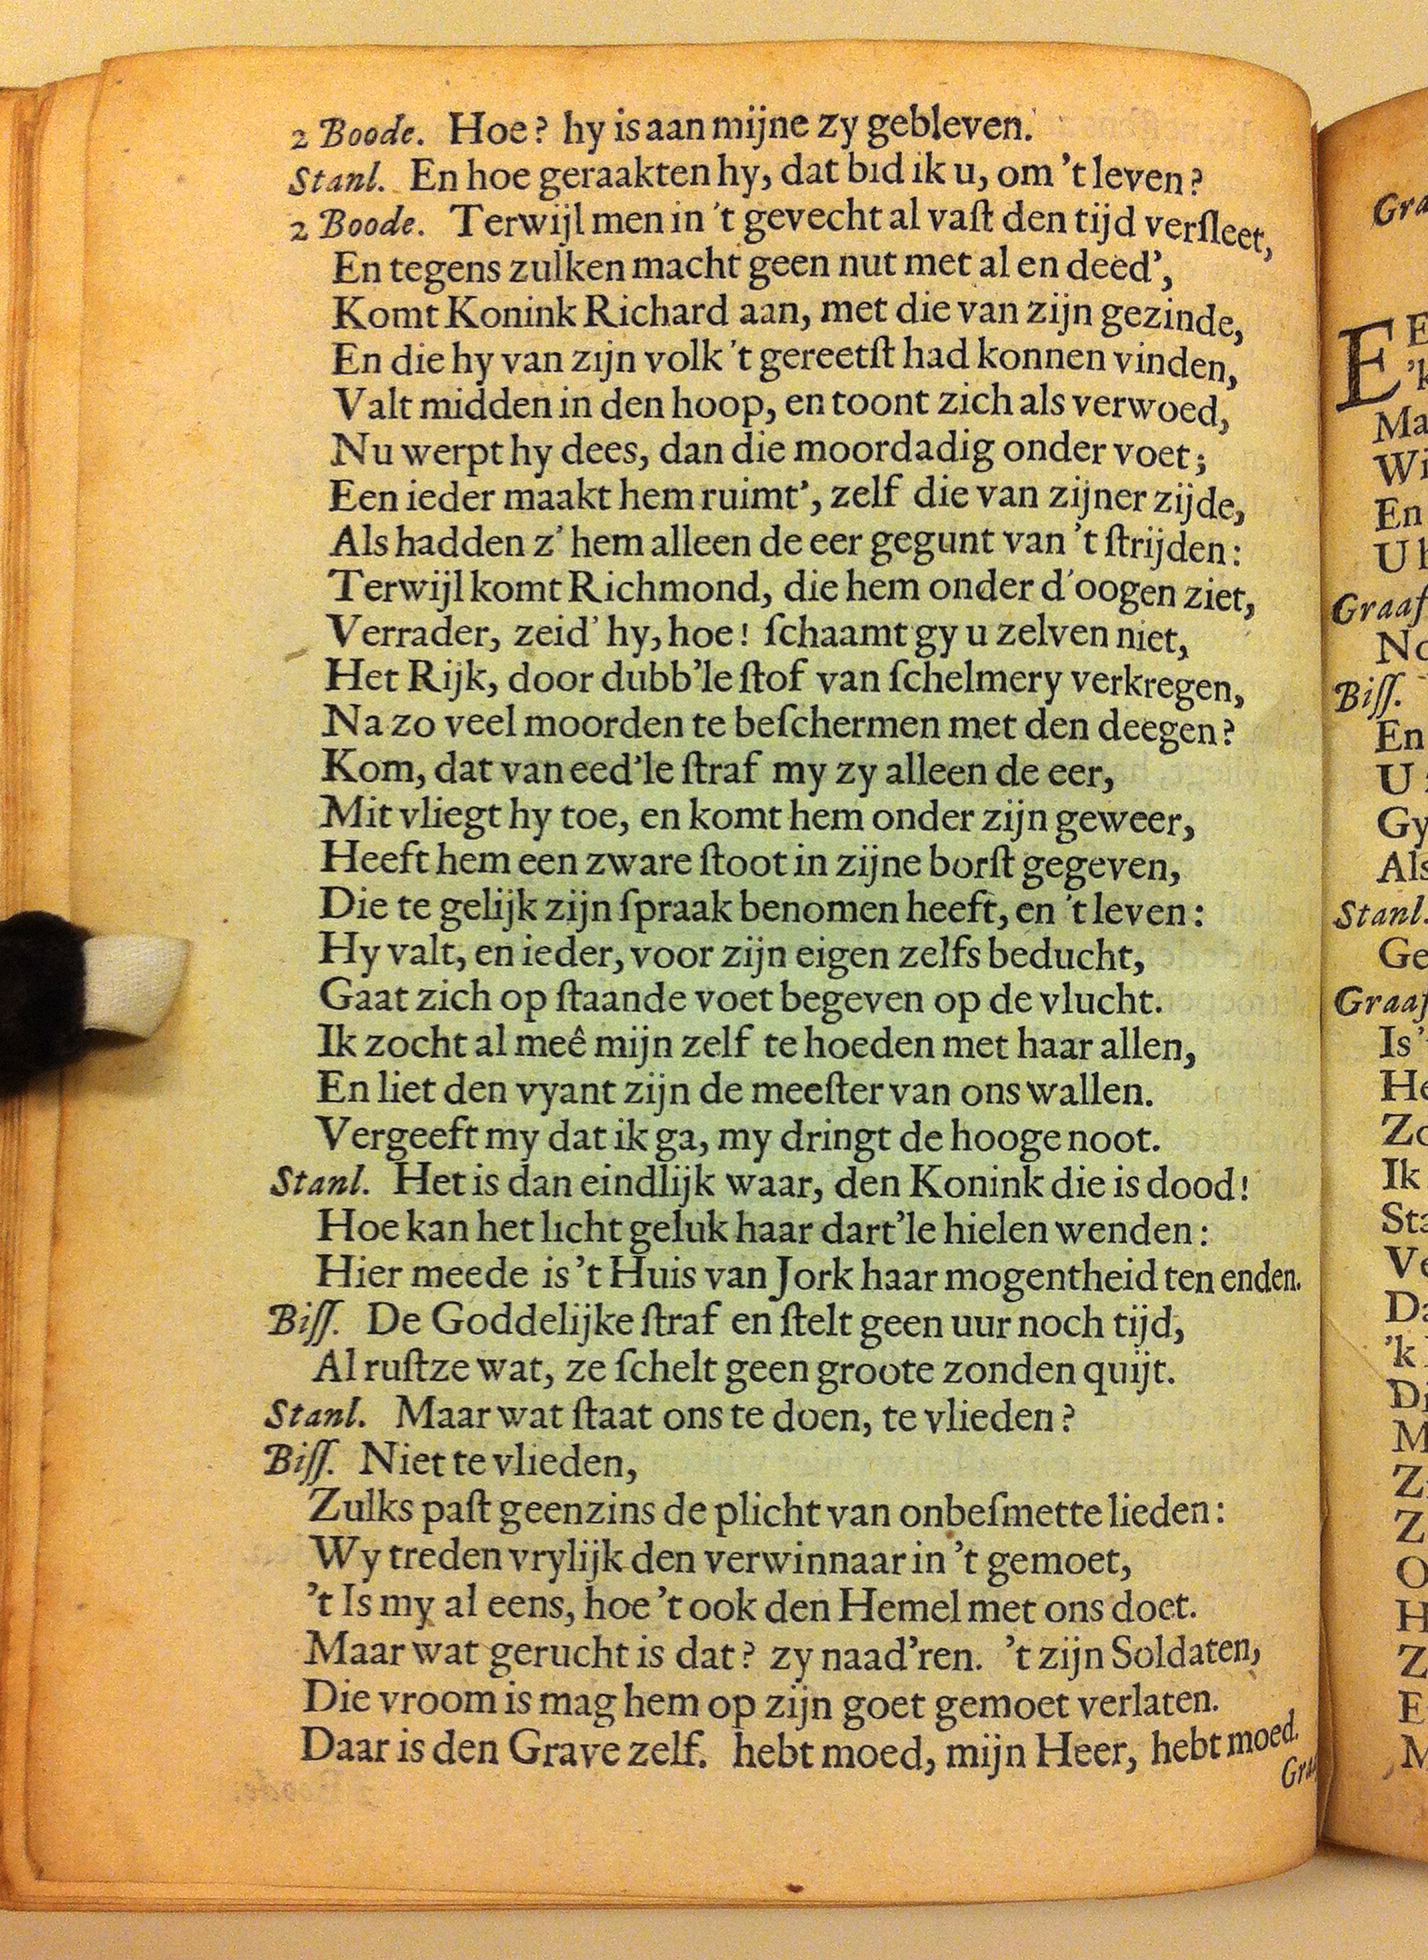 2 Boode. Hoe? hy is aan mijne zy gebleven.
Stanl. En hoe geraakten hy, dat bid ik u, om 't leven?
2 Boode. Terwijl men in 't gevecht al vaſt den tijd verſleet,
En tegens zulken macht geen nut met al en deed',
Komt Konink Richard aan, met die van zijn gezinde,
En die hy van zijn volk 't gereetſt had konnen vinden,
Valt midden in den hoop, en toont zich als verwoed,
Nu werpt hy dees, dan die moordadig onder voet;
Een ieder maakt hem ruimt', zelf die van zijner zijde,
Als hadden z' hem alleen de eer gegunt van 't ſtrijden:
Terwijl komt Richmond, die hem onder d'oogen ziet,
Verrader, zeid' hy, hoe! ſchaamt gy u zelven niet,
Het Rijk, door dubb'le ſtof van ſchelmery verkregen,
Na zo veel moorden te beſchermen met den deegen?
Kom, dat van eed'le ſtraf my zy alleen de eer,
Mit vliegt hy toe, en komt hem onder zijn geweer,
Heeft hem een zware ſtoot in zijne borſt gegeven,
Die te gelijk zijn ſpraak benomen heeft, en 't leven:
Hy valt, en ieder, voor zijn eigen zelfs beducht,
Gaat zich op ſtaande voet begeven op de vlucht.
Ik zocht al meê mijn zelf te hoeden met haar allen,
En liet den vyant zijn de meeſter van ons wallen.
Vergeeft my dat ik ga, my dringt de hooge noot.
Stanl. Het is dan eindlijk waar, den Konink die is dood!
Hoe kan het licht geluk haar dart'le hielen wenden:
Hier meede is 't Huis van Jork haar mogentheid ten enden.
Biſſ. De Goddelijke ſtraf en ſtelt geen uur noch tijd,
Al ruſtze wat, ze ſchelt geen groote zonden quijt.
Stanl. Maar wat ſtaat ons te doen, te vlieden?
Biſſ. Niet te vlieden,
Zulks paſt geenzins de plicht van onbeſmette lieden:
Wy treden vrylijk den verwinnaar in 't gemoet,
't Is my al eens, hoe 't ook den Hemel met ons doet.
Maar wat gerucht is dat? zy naad'ren. 't zijn Soldaten,
Die vroom is mag hem op zijn goet gemoet verlaten.
Daar is den Grave zelf. hebt moed, mijn Heer, hebt moed.
Gra
E
Ma
Wi
En
U
Graaf
No
Biſſ.
En
U
Gy
Als
Stanl.
Ge
Graaf
Is'
He
Zo
Ik
Sta
Ve
Da
'k
Di
M
Z
Z
O
H
Z
E
M